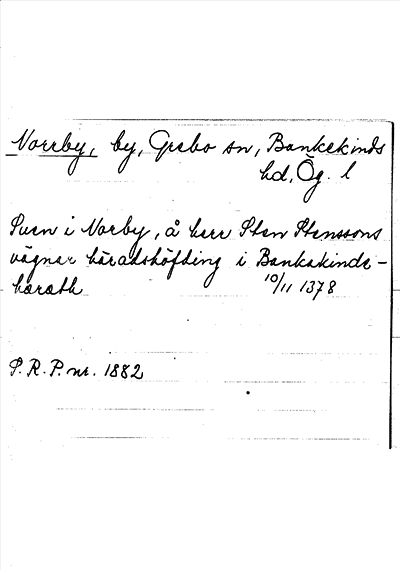 Norrby, by, Grebo sn, Bankekinds
hd, Ög. l
Suen i Norby, å herr Sten Stenssons
vägnar häradshöfding i Bankakinds-
hærath 10/11 1378
S. R. P. nr. 1882